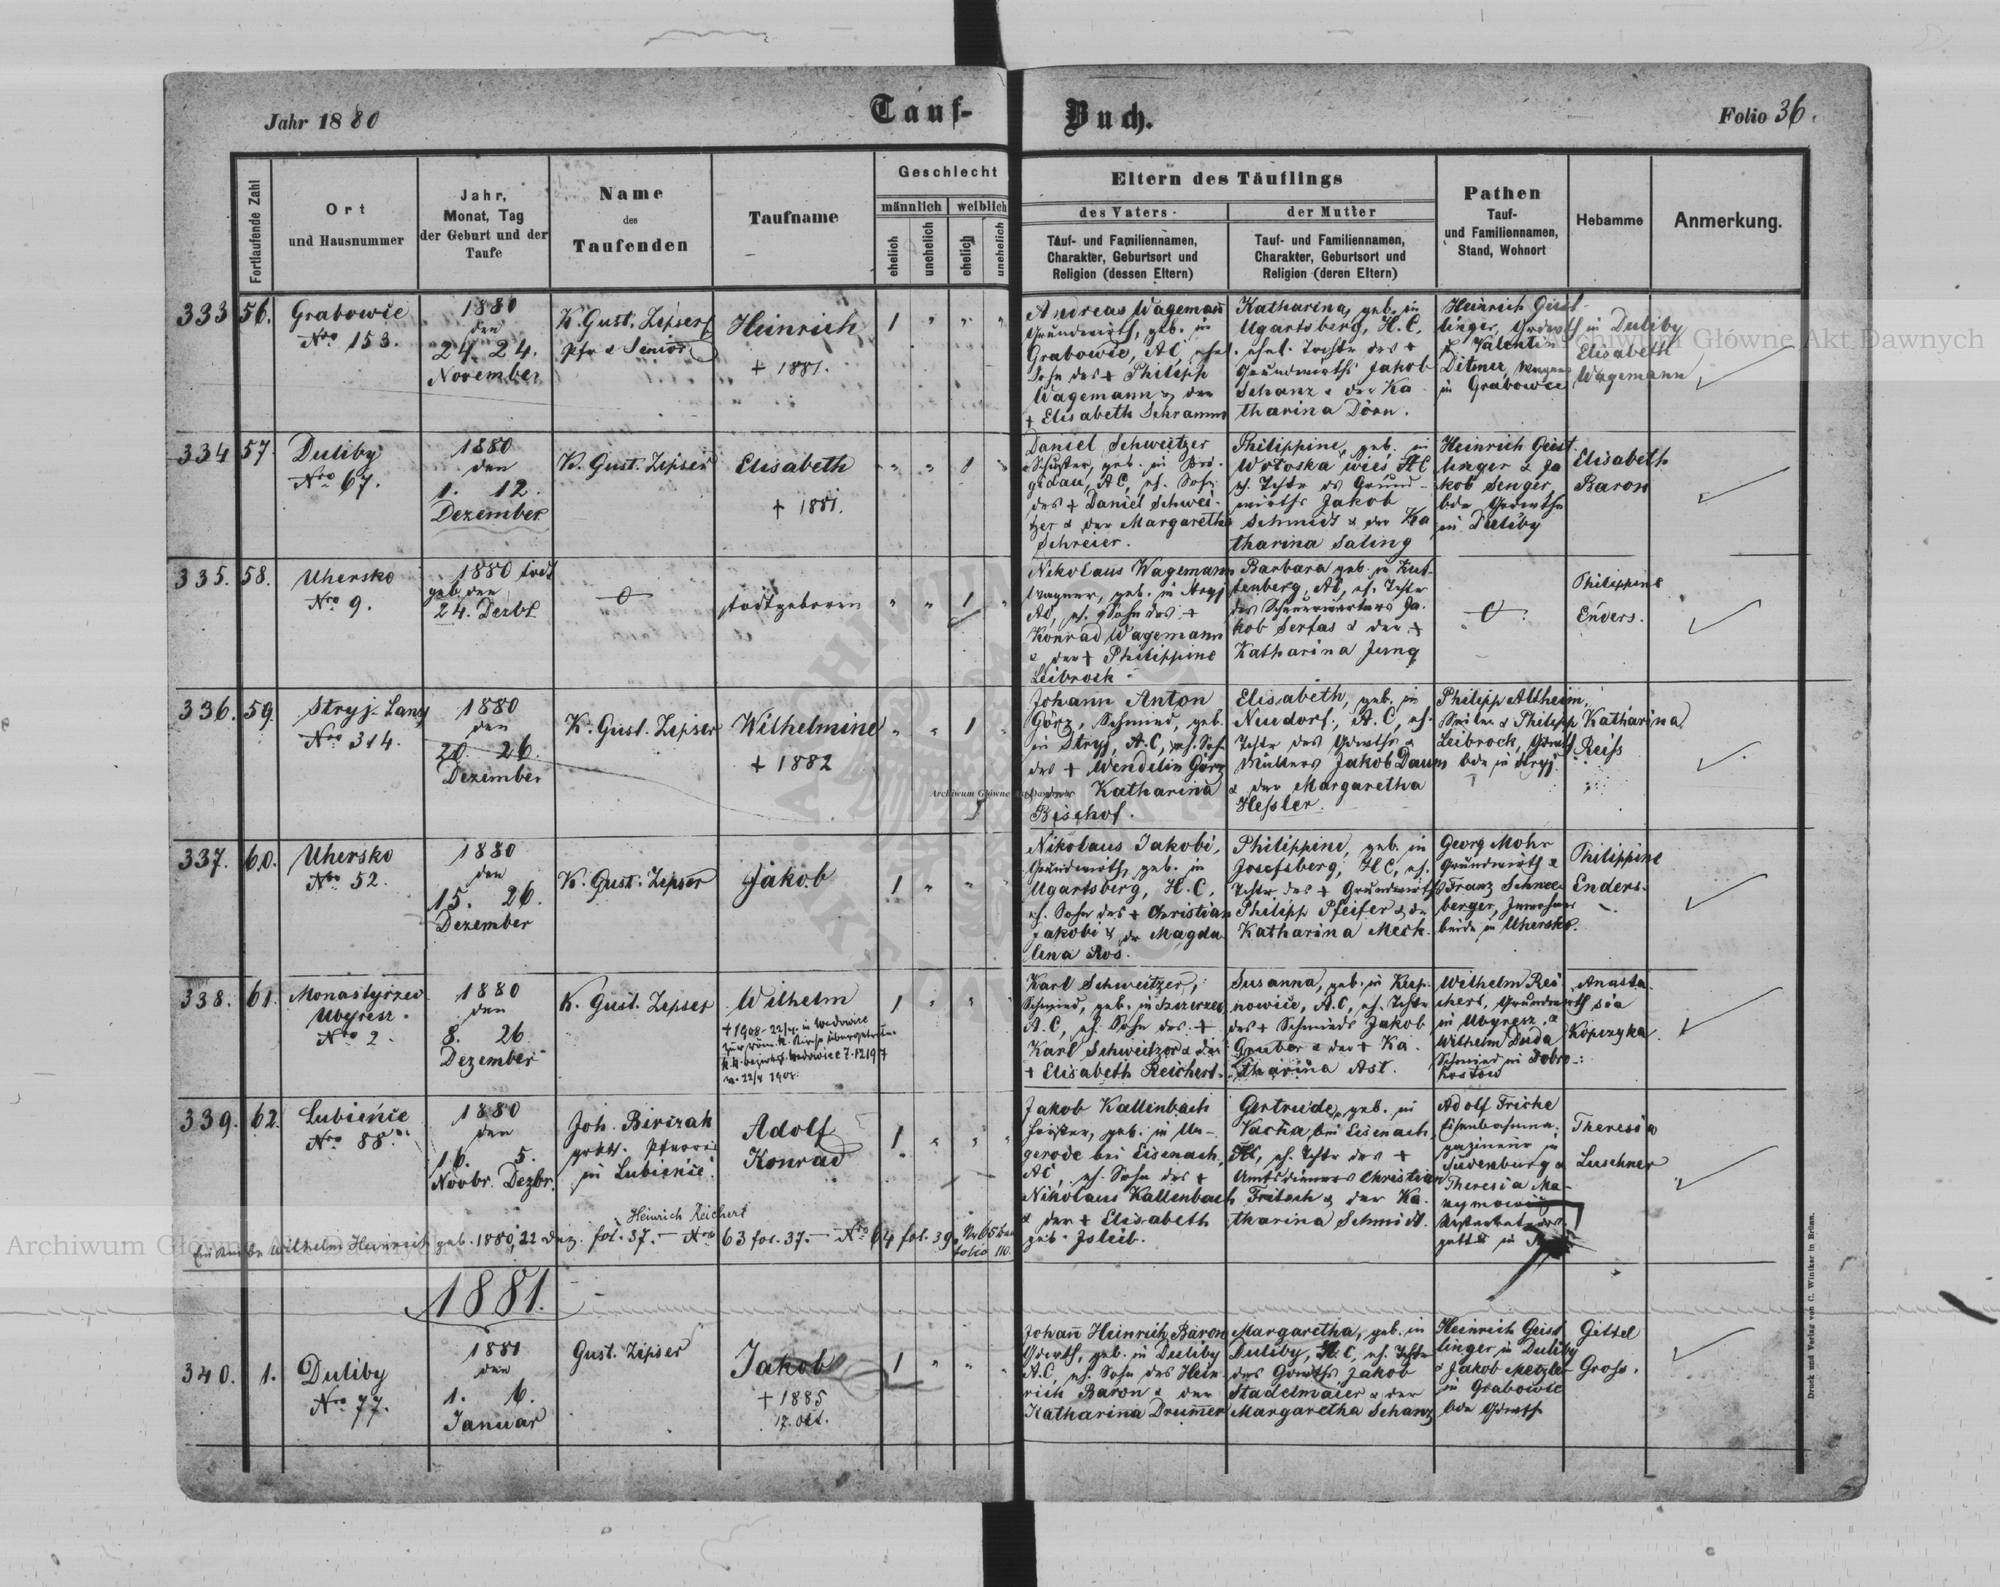 Jahr 1880
Tauf-
Buch.
Folio 36.
Fortlaufende Zahl
Ort
und Hausnummer
Jahr,
Monat, Tag
der Geburt und der
Taufe
Name
des
Taufenden
Taufname
Geschlecht
männlich
weiblich
ehelich
unehelich
ehelich
unehelich
Eltern des Täuflings
des Vaters
der Mutter
Tauf- und Familiennamen,
Charakter, Geburtsort und
Religion (dessen Eltern)
Tauf- und Familiennamen,
Charakter, Geburtsort und
Religion (deren Eltern)
Pathen
Tauf-
und Familiennamen,
Stand, Wohnort
Hebamme
Anmerkung.
333 56.
Grabowie
Nro 153.
1880
den
24. 24.
November
K. Gust. Zipser
Pfr & Senior
Heinrich
+ 1881.
1
Andreas Wagemann
Grundwirth, geb. in
Grabowie, AC, ehel.
Sohn des + Philipp
Wagemann & der
+ Elisabeth Schramm
Katharina, geb. in
Ugartsberg, H.C.
ehel. Tochter des +
Grundwirths Jakob
Schanz & der Ka
tharina Dörn.
Heinrich Geist-
linger, Grdwrth in Duliby
& Valentin
Ditmer, Wagner
in Grabowie
Elisabeth
Wagemann
334 57.
Duliby
Nro 67.
1880
den
1. 12.
Dezember
K. Gust. Zipser
Elisabeth
+ 1881.
1
Daniel Schweitzer
Schuster, geb. in Bri-
gidau, AC, eh. Sohn
des + Daniel Schwei-
tzer & der Margaretha
Schreier.
Philippine, geb. in
Wołoska wieś AC
eh. Tchtr ds Grund-
wirths Jakob
Schmidt & der Ka
tharina Saling
Heinrich Geist
linger & Ja
kob Senger,
bde Grdwrthe
in Duliby
Elisabeth
Baron
335. 58.
Uhersko
Nro 9.
1880 todt
geb. den
24. Dezbr
todtgeboren
1
Nikolaus Wagemann
Wagner, geb. in Stryj
AC, eh. Sohn des +
Konrad Wagemann
& der + Philippine
Leibrock
Barbara geb. in
tenberg, AC, eh. Tchtr
des Ja.
kob Serfas & der +
Katharina Jung
Philippine
Enders.
336. 59.
Stryj-Lany
Nro 314.
1880
den
20 26.
Dezember
K. Gust. Zipser
Wilhelmine
+ 1882
1
Johann Anton
Görz, Schmied, geb.
in Stryj, A.C, eh. Sohn
des + Wendelin Görz
& der Katharina
Bischof.
Elisabeth, geb. in
Neudorf, A.C, eh.
Tchtr des Grdwrths &
Müllers Jakob Daum
& der Margaretha
Hessler.
Philipp Altheim,
& Philipp
Leibrock, Grdwrth
bde in Stryj.
Katharina
Reiss
337. 60.
Uhersko
Nro 52.
1880
den
15. 26.
Dezember
K. Gust. Zipser
Jakob
1
Nikolaus Jakobi,
Grundwirth, geb. in
Ugartsberg, H.C.
eh. Sohn des + Christian
Jakobi & der Magda
lena Ros.
Philippine, geb. in
Josefsberg, HC, eh.
Tchtr des + Grundwirths
Philipp Pfeifer & der
Katharina Mech.
Georg Mohr
Grundwirth &
Franz Schnee-
berger, Inwohner
beide in Uhersko.
Philippine
Enders.
338. 61.
Monastyrzec
Ubyresz.
Nro 2.
1880
den
8. 26.
Dezember
K. Gust. Zipser
Wilhelm
+ 1908 22/4 in Wadowice
zur röm. k. Kirche übergetreten
Wadowice
22/4 1908.
1
Karl Schweitzer,
Schmied, geb. in
A.C, eh. Sohn des +
Karl Schweitzer & der
+ Elisabeth Reichert.
Susanna, geb. in
nowice, A.C, eh. Tchtr
des + Schmieds Jakob
Gruber & der + Ka.
tharina Ast.
Wilhelm Rei
chert, Grundwirth
in Ubyresz, &
Wilhelm Duda
Schmied in Dobro
kostow
Anasta
sia
Kopczyka.
339. 62.
Lubieńce
Nro 88.
1880
den
16. 5.
Novbr. Dezbr.
Joh. Birczak
Pfarrer
in Lubieńce
Adolf
Konrad
1
Jakob Kallenbach
Förster, geb. in Un-
gerode bei Eisenach,
AC, eh. Sohn des +
Nikolaus Kallenbach
& der + Elisabeth
geb. Isleib.
Gertrude, geb. in
Vacha bei Eisenach,
AC, eh. Tchtr des +
Amtsdieners Christian
Fritsch & der Ka.
tharina Schmidt.
Adolf Fricke
Eisenbahnma-
gazineur in
Sudenburg &
Theresia Ma-
in
Theresia
Luschner
Heinrich Reichert
Wilhelm Heinrich geb. 1880, 22 Dez. fol. 37. — Nro 63 fol. 37. — Nro 64 fol. 39. Nr 65
folio 110.
1881.
340. 1.
Duliby
Nro 77.
1881
den
1. 6.
Januar
Gust. Zipser
Jakob
+ 1885
17. Okt.
1
Johann Heinrich Baron
Grdwrth, geb. in Duliby
A.C, eh. Sohn des Hein
rich Baron & der
Katharina Drummer
Margaretha, geb. in
Duliby, A.C, eh. Tchtr
des Grdwrths Jakob
Stadelmaier & der
Margaretha Schanz
Heinrich Geist
linger, in Duliby
& Jakob Metzler
in Grabowie
bde Grdwrth
Gittel
Gross.
Druck und Verlag von C. Winiker in Brünn.
Archiwum Główne Akt Dawnych
Archiwum Główne Akt Dawnych
Archiwum Główne Akt Dawnych